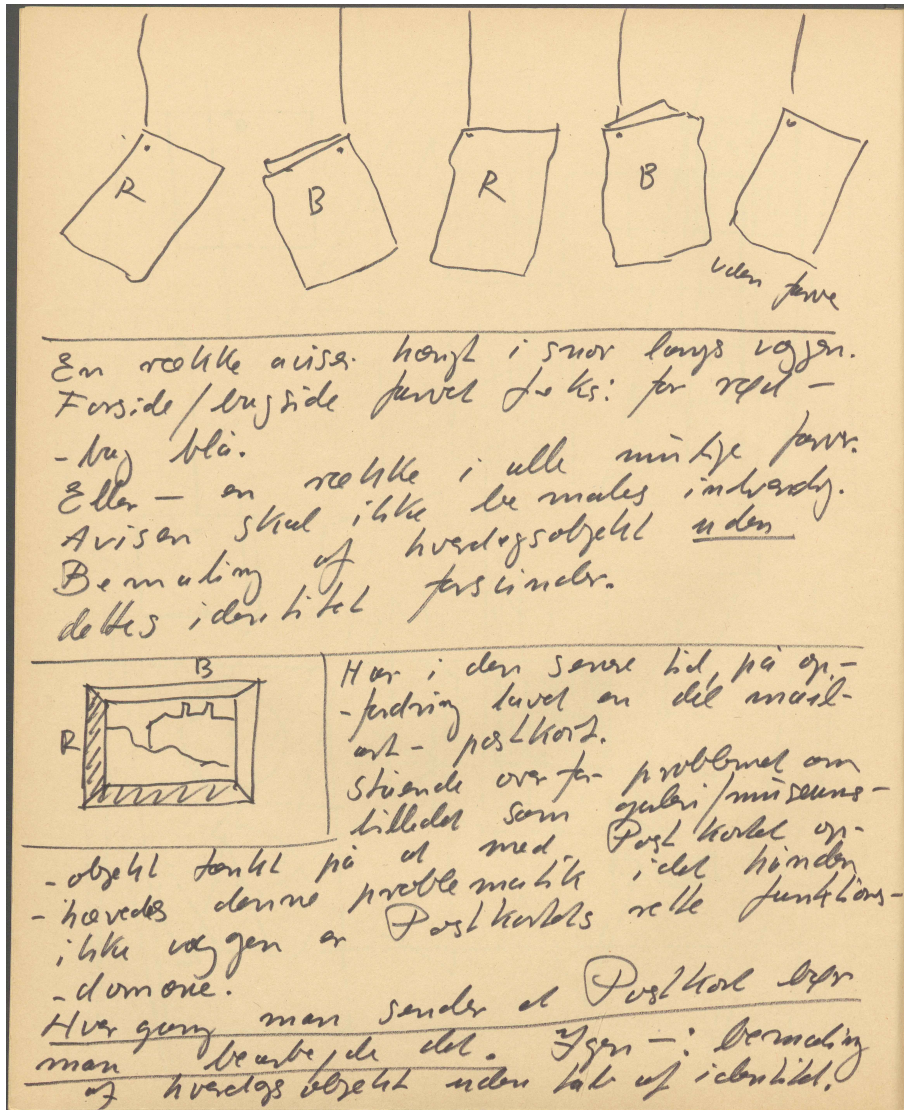 R
B
R
B
uden farve
En række aviser hængt i snor langs væggen.
Forside/bagside farvet f.eks: for rød –
- bag blå.
Eller – en række i alle mulige farver.
Avisen skal ikke bemales indvendig.
Bemaling af hverdagsobjekt uden
dettes identitet forsvinder.
B
R
Har i den senere tid, på op-
-fordring lavet en del mail-
art - postkort.
Stående overfor problemet om
billedet som galeri/museums-
-objekt tænkt på at med Postkortet op-
-hæves denne problematik idet hånden
ikke væggen er Postkortets rette funktions-
-domæne.
Hver gang man sender et Postkort bør
man bearbejde det. Igen –: bemaling
af hverdagsobjekt uden tab af identitet.